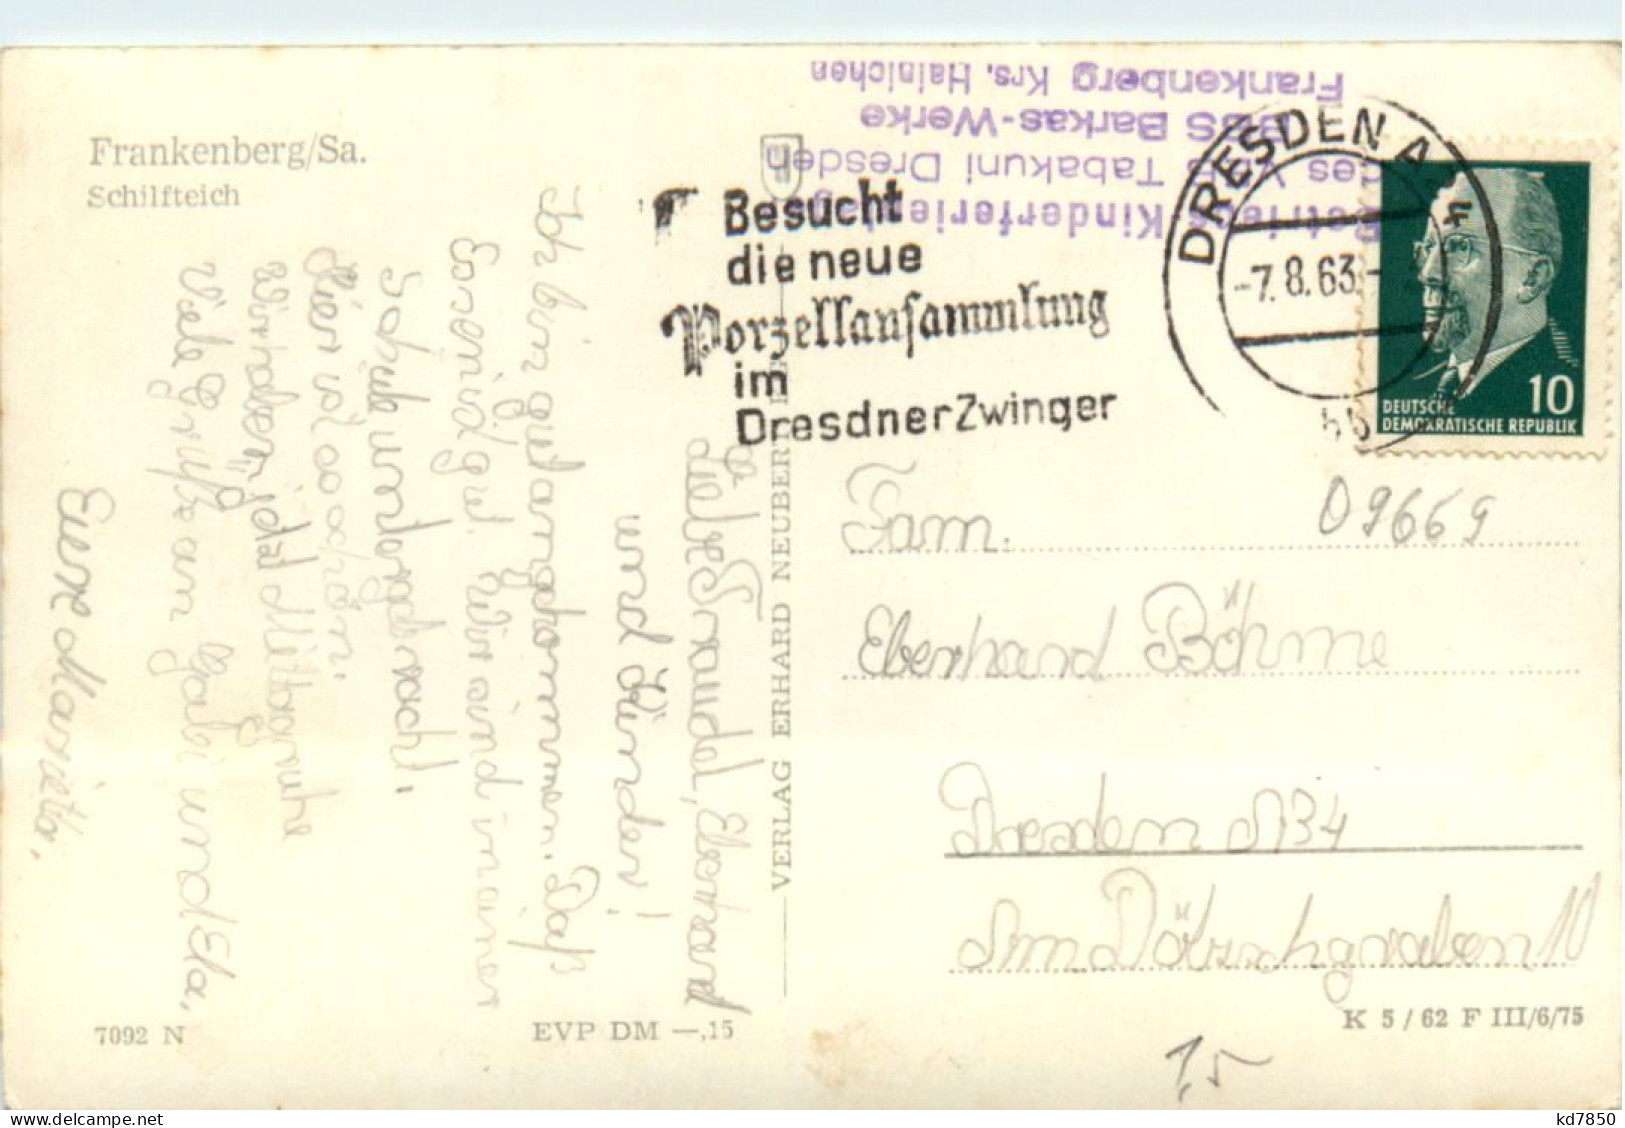 Frankenberg/Sa.
Schilfteich
Liebe Traudel, Eberhard
und Kinder!
Ich bin gut angekommen. Daß
Essen ist gut. Wir sind in einer
Schule untergebracht.
Hier ist es schön.
Wir haben jetzt Mittagruhe
Viele Grüße an Gabi und Ela,
Eure Marieta.
7092 N
EVP DM —,15
VERLAG ERHARD NEUBERT
Betriebs Kinderferienlager
des VEB Tabakuni Dresden
BBS Barkas-Werke
Frankenberg Krs. Hainichen
Besucht
die neue
Porzellansammlung
im
Dresdner Zwinger
DRESDEN A
-7.8.63-
bb
10
DEUTSCHE
DEMOKRATISCHE REPUBLIK
09669
Fam.
Eberhard Böhme
Dresden A 34
Am Dölzschgraben 10
K 5/62 F III/6/75
1,5
kd7850